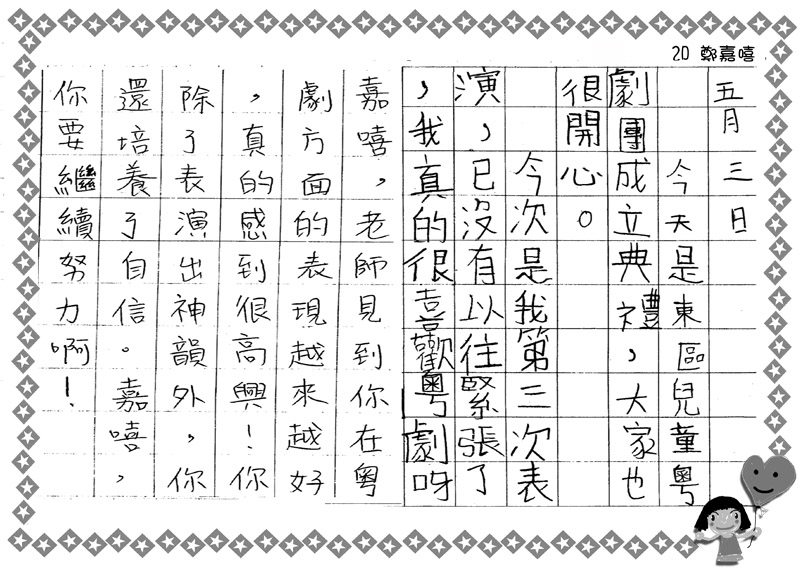 20 鄭嘉嘻
五月三日
今天是東區兒童粵
劇團成立典禮，大家也
很開心。
今次是我第三次表
演，已沒有以往緊張了
，我真的很喜歡粵劇呀
嘉嘻，老師見到你在粵
劇方面的表現越來越好
，真的感到很高興！你
除了表演出神韻外，你
還培養了自信。嘉嘻，
你要繼續努力啊！